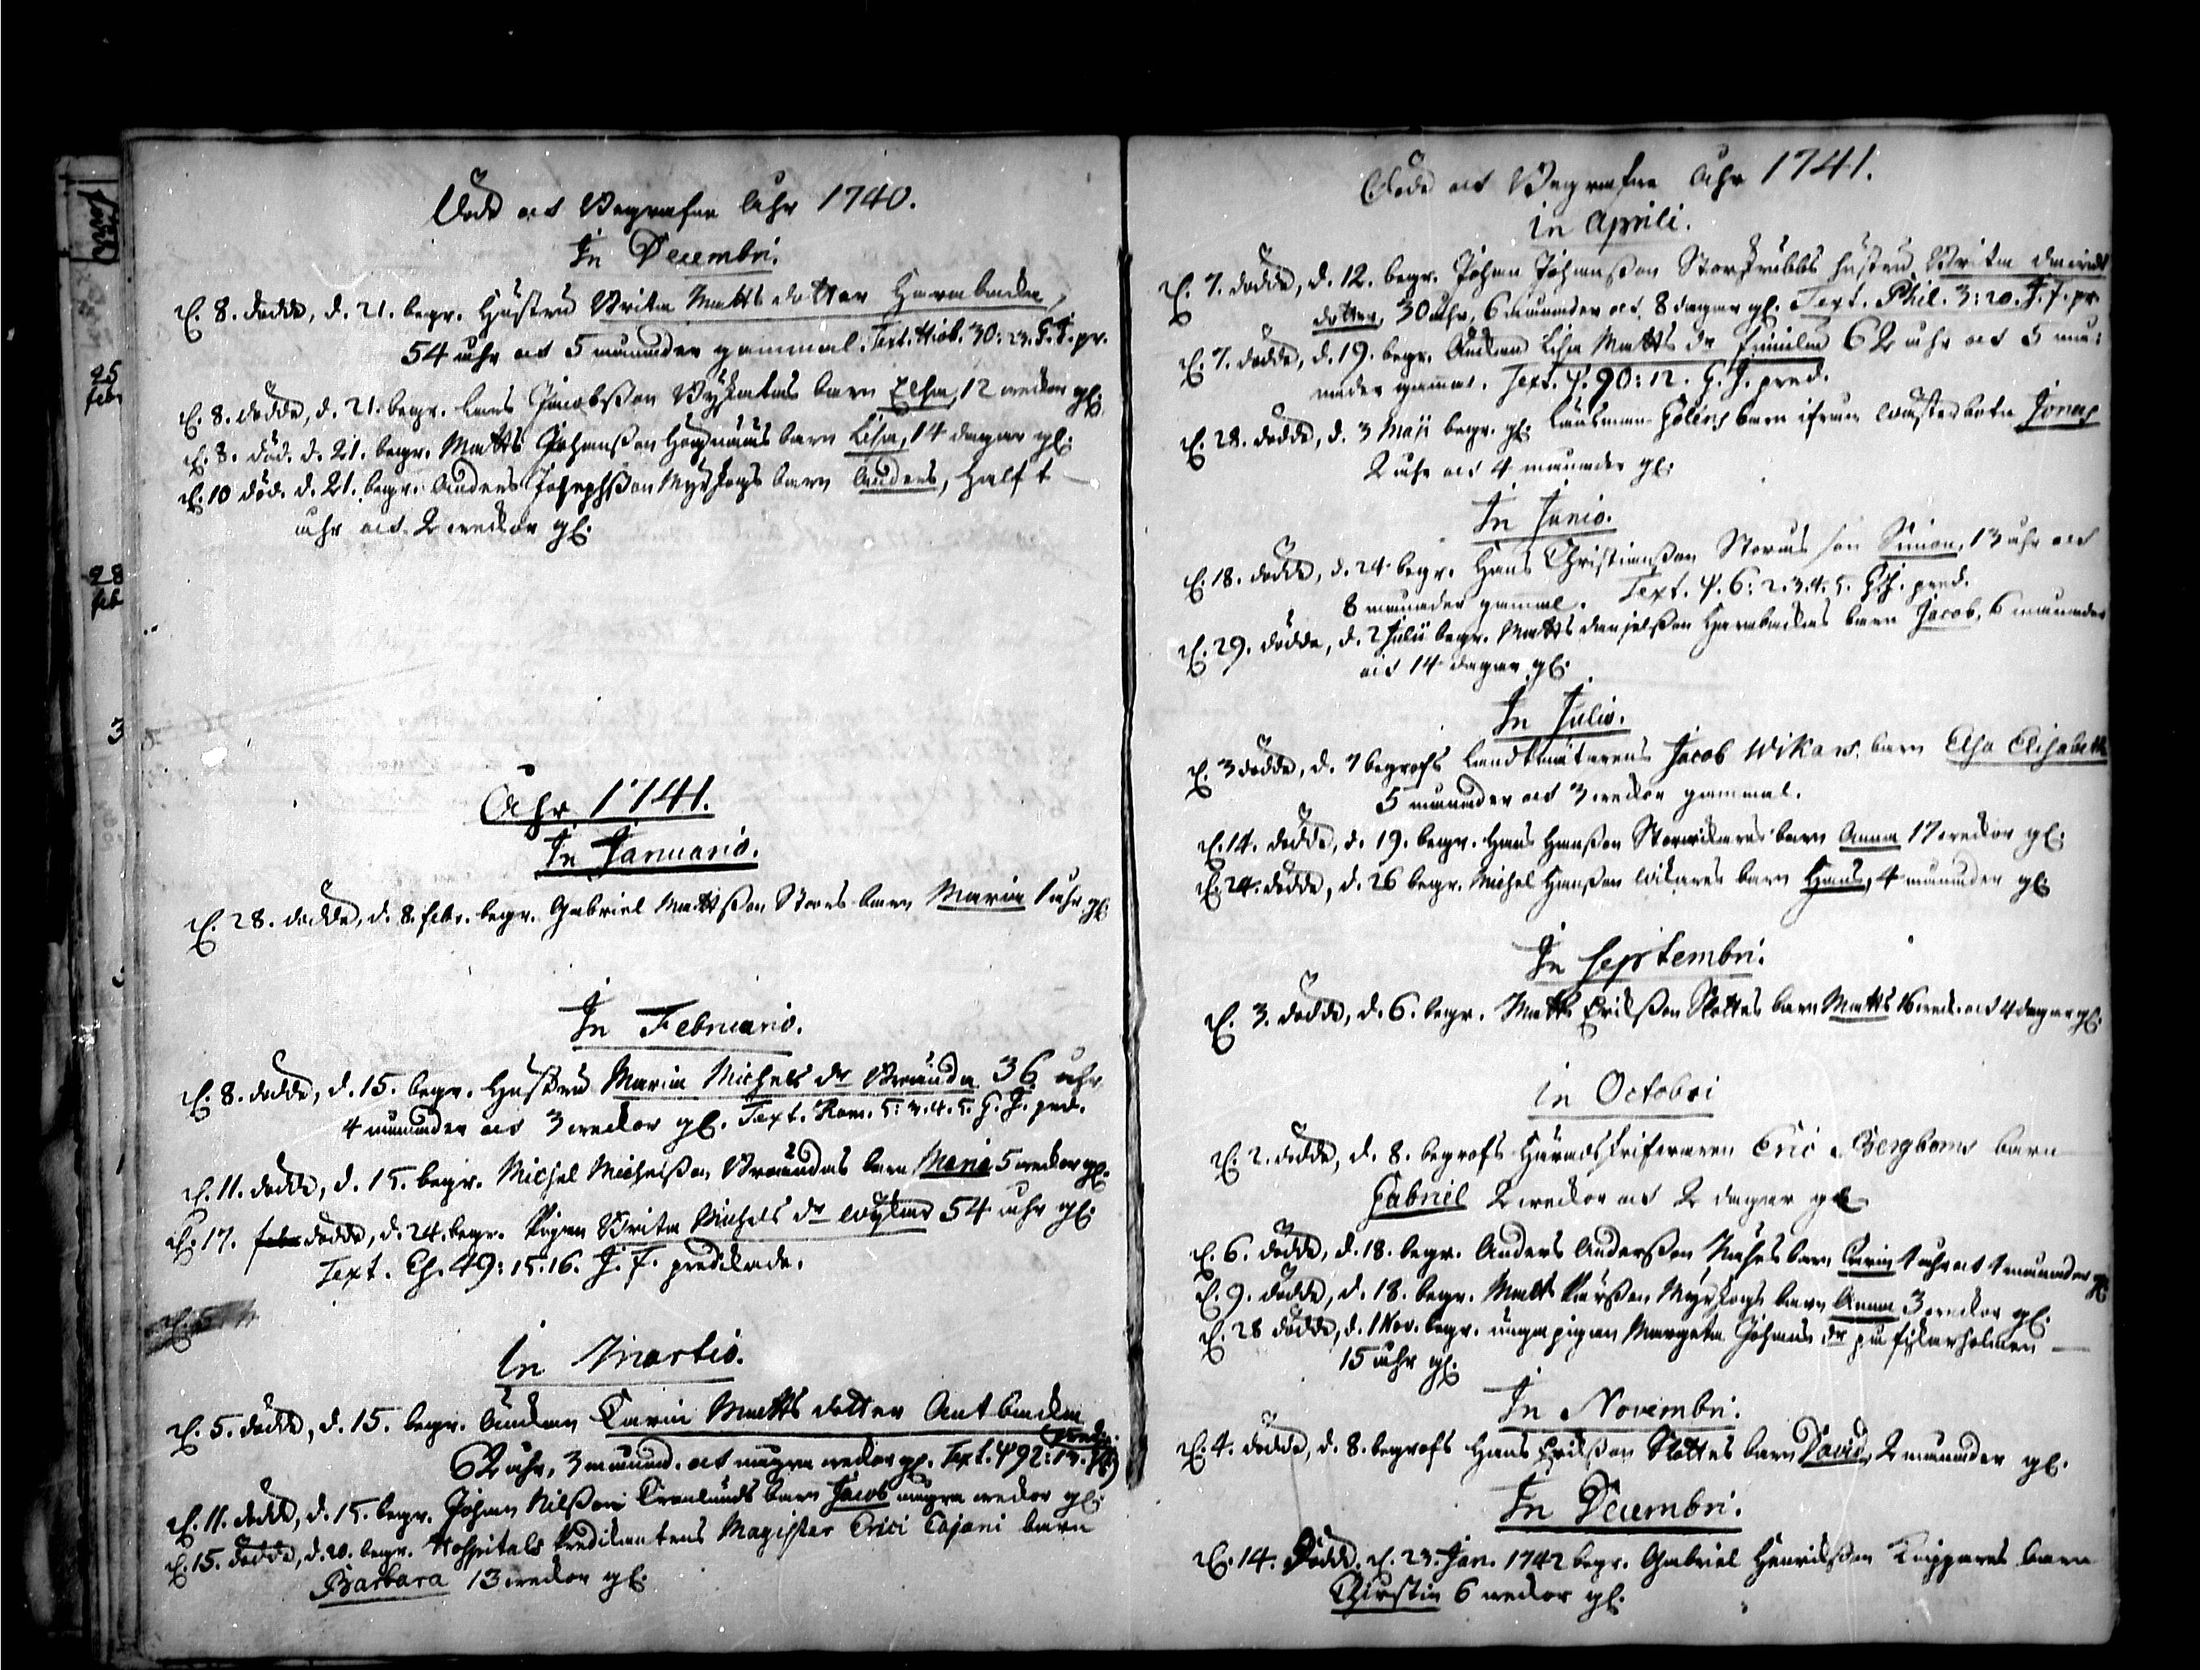 Döde och Begrafne Åhr 1740.
In Decembri.
d. 8. dödde, d. 21. begr. Hustru Brita Matts dotter Harabacka,
54 åhr och 5 månader gammal. Text. Hiob. 30: 23. G. F. pr.
d. 8. dödde, d. 21. begr. Lars Jacobsson Byskatas barn Elsa, 12 weckor gl.
d. 8. död. d. 21. begr. Matts Johansson barn Lisa, 14 dagar gl.
d. 10 död. d. 21. begr. Anders Josephsson Myrskogs barn Anders, Halft
åhr och 2 weckor gl.
Åhr 1741.
In Januario.
d. 28. dödde, d. 8. febr. begr. Gabriel Mattsson Stores barn Maria 1 åhr gl
In Februario.
d. 8. dödde, d. 15. begr. Hustru Maria Michels dr Brända 36 åhr,
4 månader och 3 weckor gl. Text. Rom. 5: 3. 4. 5. G. F. pred.
d. 11. dödde, d. 15. begr. Michel Michelsson Brändas barn Maria 5 weckor gl.
d. 17. febr dödde, d. 24. begr. Pigan Brita Michels dr 54 åhr gl.
Text. Es. 49: 15. 16. J. F. predikade.
In Martio.
d. 5. dödde, d. 15. begr. Änckan Carin Matts dotter Antbacka
62 åhr, 3 månad. och några weckor gl. Text. Ψ 92: 13.
d. 11. dödde, d. 15. begr. Johan Nilsson Cronlunds barn Jacob några weckor gl.
d. 15. dödde, d. 20. begr. Hospitals Predikantens Magister Erici Cajani barn
Barbara 13 weckor gl.
Döde och Begrafne Åhr 1741.
in Aprili.
d. 7. dödde, d. 12. begr. Johan Johansson Storstubbs hustru Brita Davids
dotter, 30 åhr, 6 månader och 8 dagar gl. Text. Phil. 3: 20. J. F. pr.
d. 7. dödde, d. 19. begr. Änckan Lisa Matts dr 62 åhr och 5 må-
nader gammal. Text. Ψ. 90: 12. G. F. pred.
d. 28. dödde, d. 3 Maji begr. Länsman barn ifrån Wästerbotn Jonas
2 åhr och 4 månader gl.
In Junio.
d. 18. dödde, d. 24 begr. Hans Christiansson Storås son Simon, 13 åhr och
8 månader gammal. Text. Ψ. 6: 2. 3. 4. 5. G. F. pred.
d. 29. dödde, d. 2 Julii begr. Matts Danielsson Harabackas barn Jacob, 6 månader
och 14 dagar gl.
In Julio.
d. 3 dödde, d. 7 begrofs Landtmätarens Jacob Wikars barn Elsa Elisabeth
5 månader och 3 weckor gammal.
d. 14. dödde, d. 19. begr. Hans Hansson Storwikares barn Anna 17 weckor gl.
d. 24. dödde, d. 26 begr. Michel Hansson Wikares barn Hans, 4 månader gl.
In Septembri.
d. 3. dödde, d. 6. begr. Matts Eriksson Slottes barn Matts 16 weck. och 4 dagar gl.
in Octobri
d. 2. dödde, d. 8. begrofs Häradsskrifwaren Eric Bergboms barn
Gabriel 2 weckor och 2 dagar gl
d. 6. dödde, d. 18. begr. Anders Andersson barn Carin 1 åhr och 1 månader gl
d. 9. dödde, d. 18. begr. Matts Pärsson Myrskogs barn Anna 3 weckor gl.
d. 28 dödde, d. 1 Nov. begr. unga pigan Margeta Johans dr på fiskarholmen
15 åhr gl.
In Novembri.
d. 4. dödde, d. 8. begrofs Hans Eriksson Slottes barn David, 2 månader gl.
In Decembri.
d. 14. Dödde, d. 23. Jan. 1742 begr. Gabriel Henriksson Knippares barn
Christin 6 weckor gl.
25
febr
28
feb
3